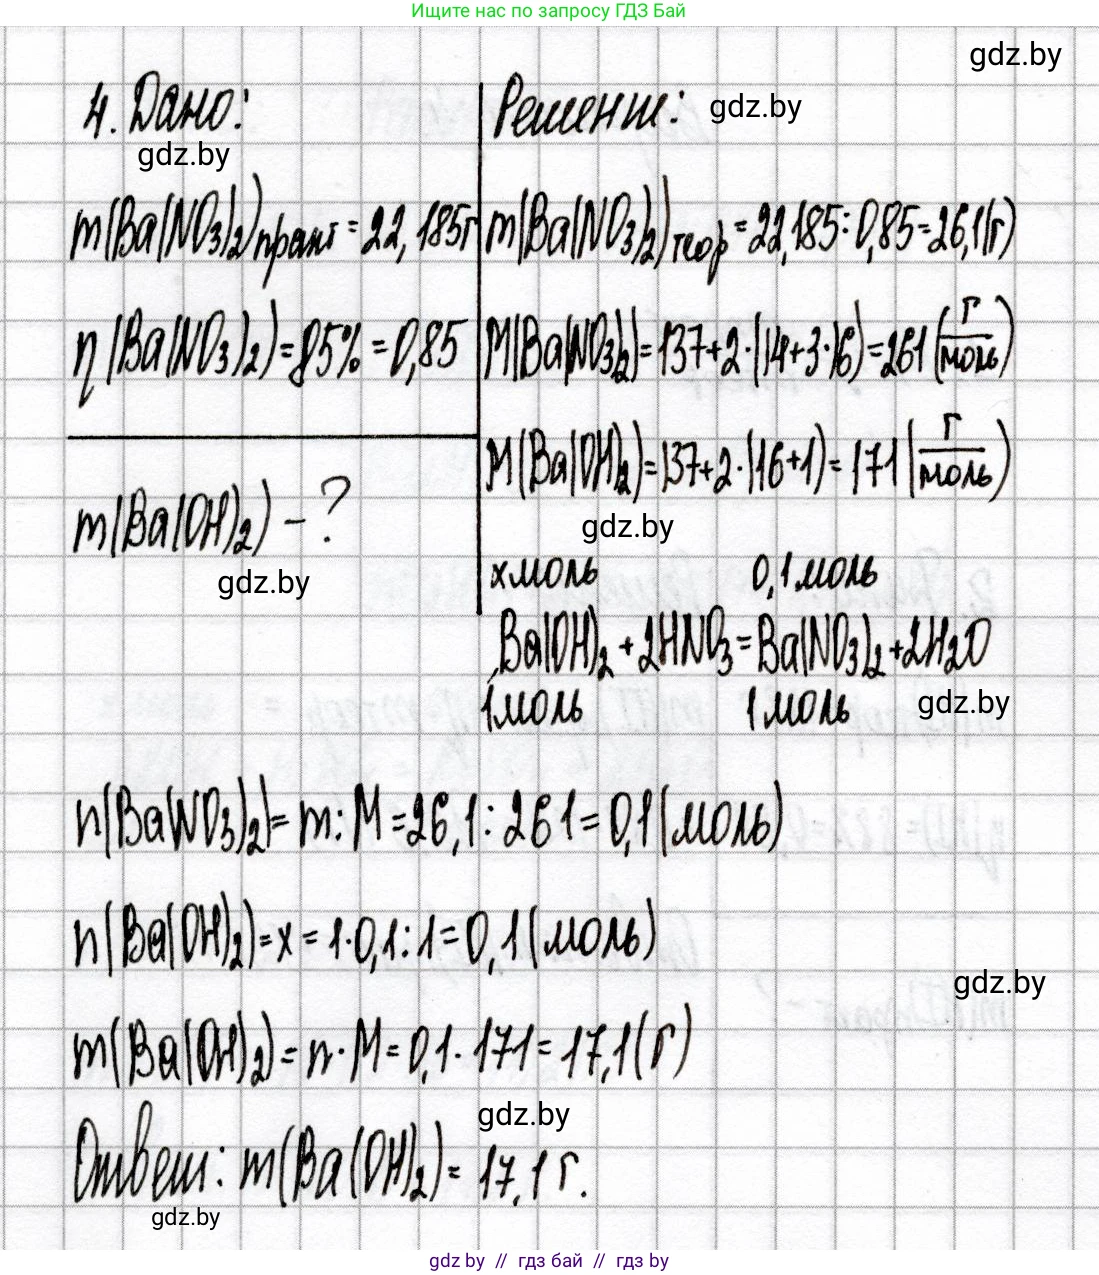 Ищите нас по запросу ГДЗ Бай
gdz.by
4. Дано:
gdz.by
m(Ba(NO3)2)практ = 22,185г
η(Ba(NO3)2) = 85% = 0,85
m(Ba(OH)2) - ?
gdz.by
Решение:
gdz.by
m(Ba(NO3)2)теор = 22,185:0,85=26,1(г)
M(Ba(NO3)2)=137+2·(14+3·16)=261(г/моль)
M(Ba(OH)2)=137+2·(16+1)=171(г/моль)
gdz.by
x моль 0,1 моль
Ba(OH)2+2HNO3=Ba(NO3)2+2H2O
1 моль 1 моль
gdz.by
n(Ba(NO3)2)= m:M=26,1:261=0,1(моль)
n(Ba(OH)2)=x=1·0,1:1=0,1(моль)
gdz.by
m(Ba(OH)2)=n·M=0,1·171=17,1(г)
gdz.by
Ответ: m(Ba(OH)2)= 17,1г.
gdz.by
gdz by // гдз бай // гдз by